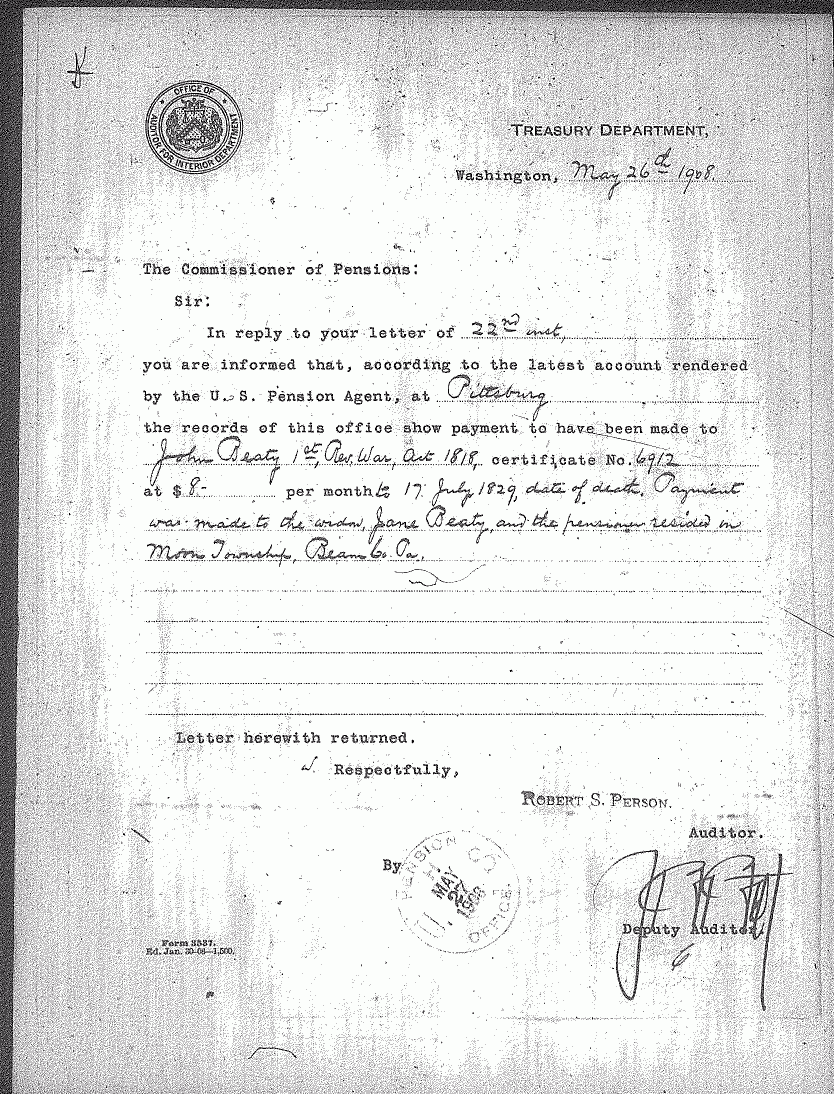 OFFICE OF
AUDITOR FOR INTERIOR DEPARTMENT
TREASURY DEPARTMENT,
Washington, May 26th 1908.
The Commissioner of Pensions:
Sir:
In reply to your letter of 22nd inst,
you are informed that, according to the latest account rendered
by the U. S. Pension Agent, at Pittsburg
the records of this office show payment to have been made to
John Beaty 1st, Rev. War, Act 1818, certificate No. 6912
at $ 8.- per month to 17 July 1829, date of death. Payment
was made to the widow, Jane Beaty, and the pensioner resided in
Moon Township, Beav. Co. Pa.
Letter herewith returned.
Respectfully,
ROBERT S. PERSON.
Auditor.
By
PENSION
OFFICE
MAY
27
1908
Deputy Auditor.
6
Form 3337.
Ed. Jan. 30-08—1,500.